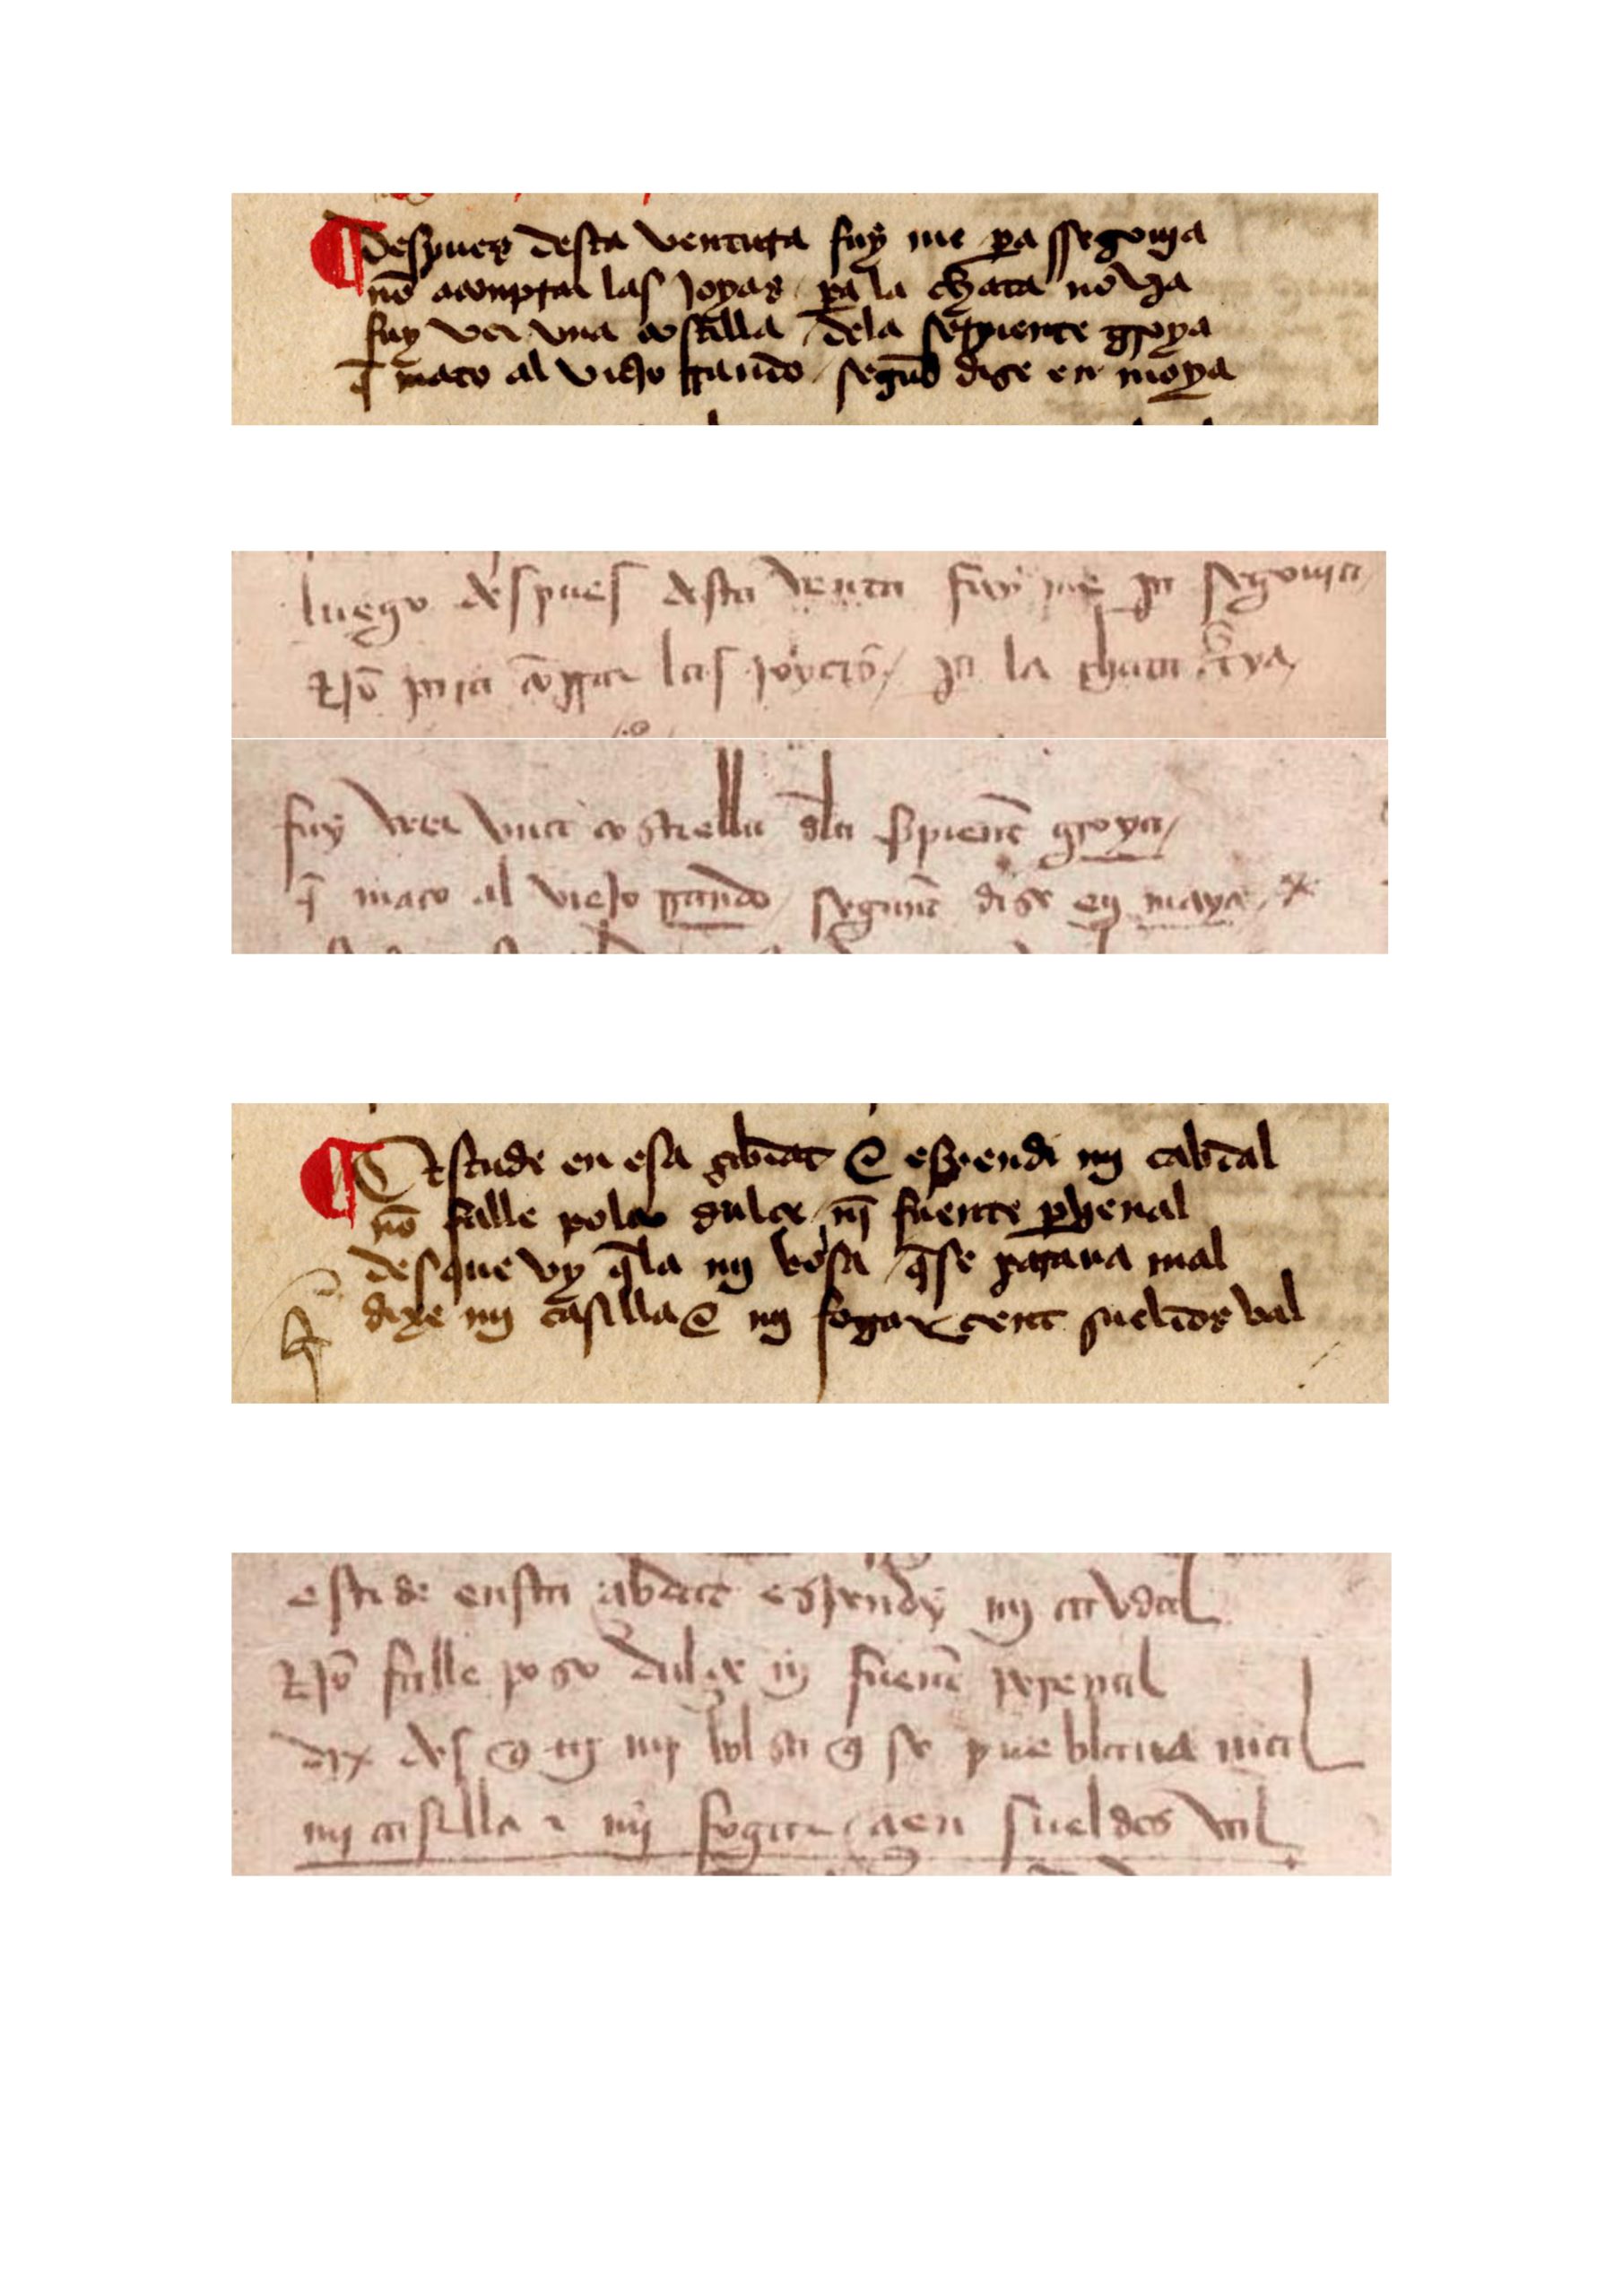 despues desta ventura fuy me pa ssegouja
nō a conprar las joyas / pa la chata nōvja
fuy ver vna costilla / dela serpiente groya
q̄ mato al viejo rrando / segūd dize en moya
luego despues desta venta fuy me pa segouja /
Nō para cōprar las joyas / pa la chata
fuy veer vna costiella dla spient̄ groya /
q̄ mato al viejo rrando / segunt̄ dise en maya /
Estude en esa çibdat & espendi mj cabdal
nō falle poço dulçe / nj̄ fuente perhenal
desque vy q̄la mj bolsa / q̄se paraua mal
dixe mj casilla & mj fogar çient sueldos val
estide ensta çibdat espendy mj cavdal
Nō falle poso dulçe nj fuent̄ perenal
dix des q̄ mj bolsa q̄ se pueblaua mal
mj casilla τ mj fogar / çien sueldos val